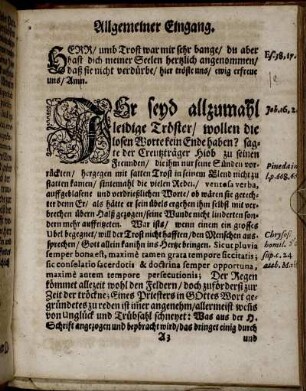 Allgemeiner Eingang.
HERR/ umb Trost war mir sehr bange/ du aber
hast dich meiner Seelen hertzlich angenommen/
daß sie nicht verdürbe/ hier tröste uns/ ewig erfreue
uns/ Amn.
Esa. 38, 17.
IHr seyd allzumahl
leidige Tröster/ wollen die
losen Worte kein Ende haben? sag-
te der Creutzträger Hiob zu seinen
Freunden/ die ihm nur seine Sünden vor-
Job. 16, 2.
rückten/ hergegen mit satten Trost in seinem Elend nicht zu
statten kamen/ sintemahl die vielen Reden/ ventosa verba,
auffgeblasene und verdrießlichen Worte/ ob wären sie gerech-
ter denn Er/ als hätte er sein übels ergehen ihm selbst mit ver-
brechen übern Halß gezogen/ seine Wunde nicht linderten son-
dern mehr auffrissen. War ists/ wenn einem ein grosses
übel begegnet/ will der Trost nicht hafften/ den Menschen aus-
sprechen/ Gott allein kan ihn ins Hertze bringen. Sicut pluvia
semper bona est, maximè tamen grata tempore siccitatis;
sic consolatio sacerdotis & doctrina semper opportuna,
maximè autem tempore persecutionis; Der Regen
kömmet allezeit wohl den Feldern/ doch zuförderst zur
Zeit der tröckne; Eines Priesters in GOttes Wort ge-
gründetes zu reden ist imer angenehm/ allermeist wo es
von Unglück und Trübsahl schneyet: Was aus der H.
Schrift angezogen und beybracht wird/ das dringet einig durch
A3 und